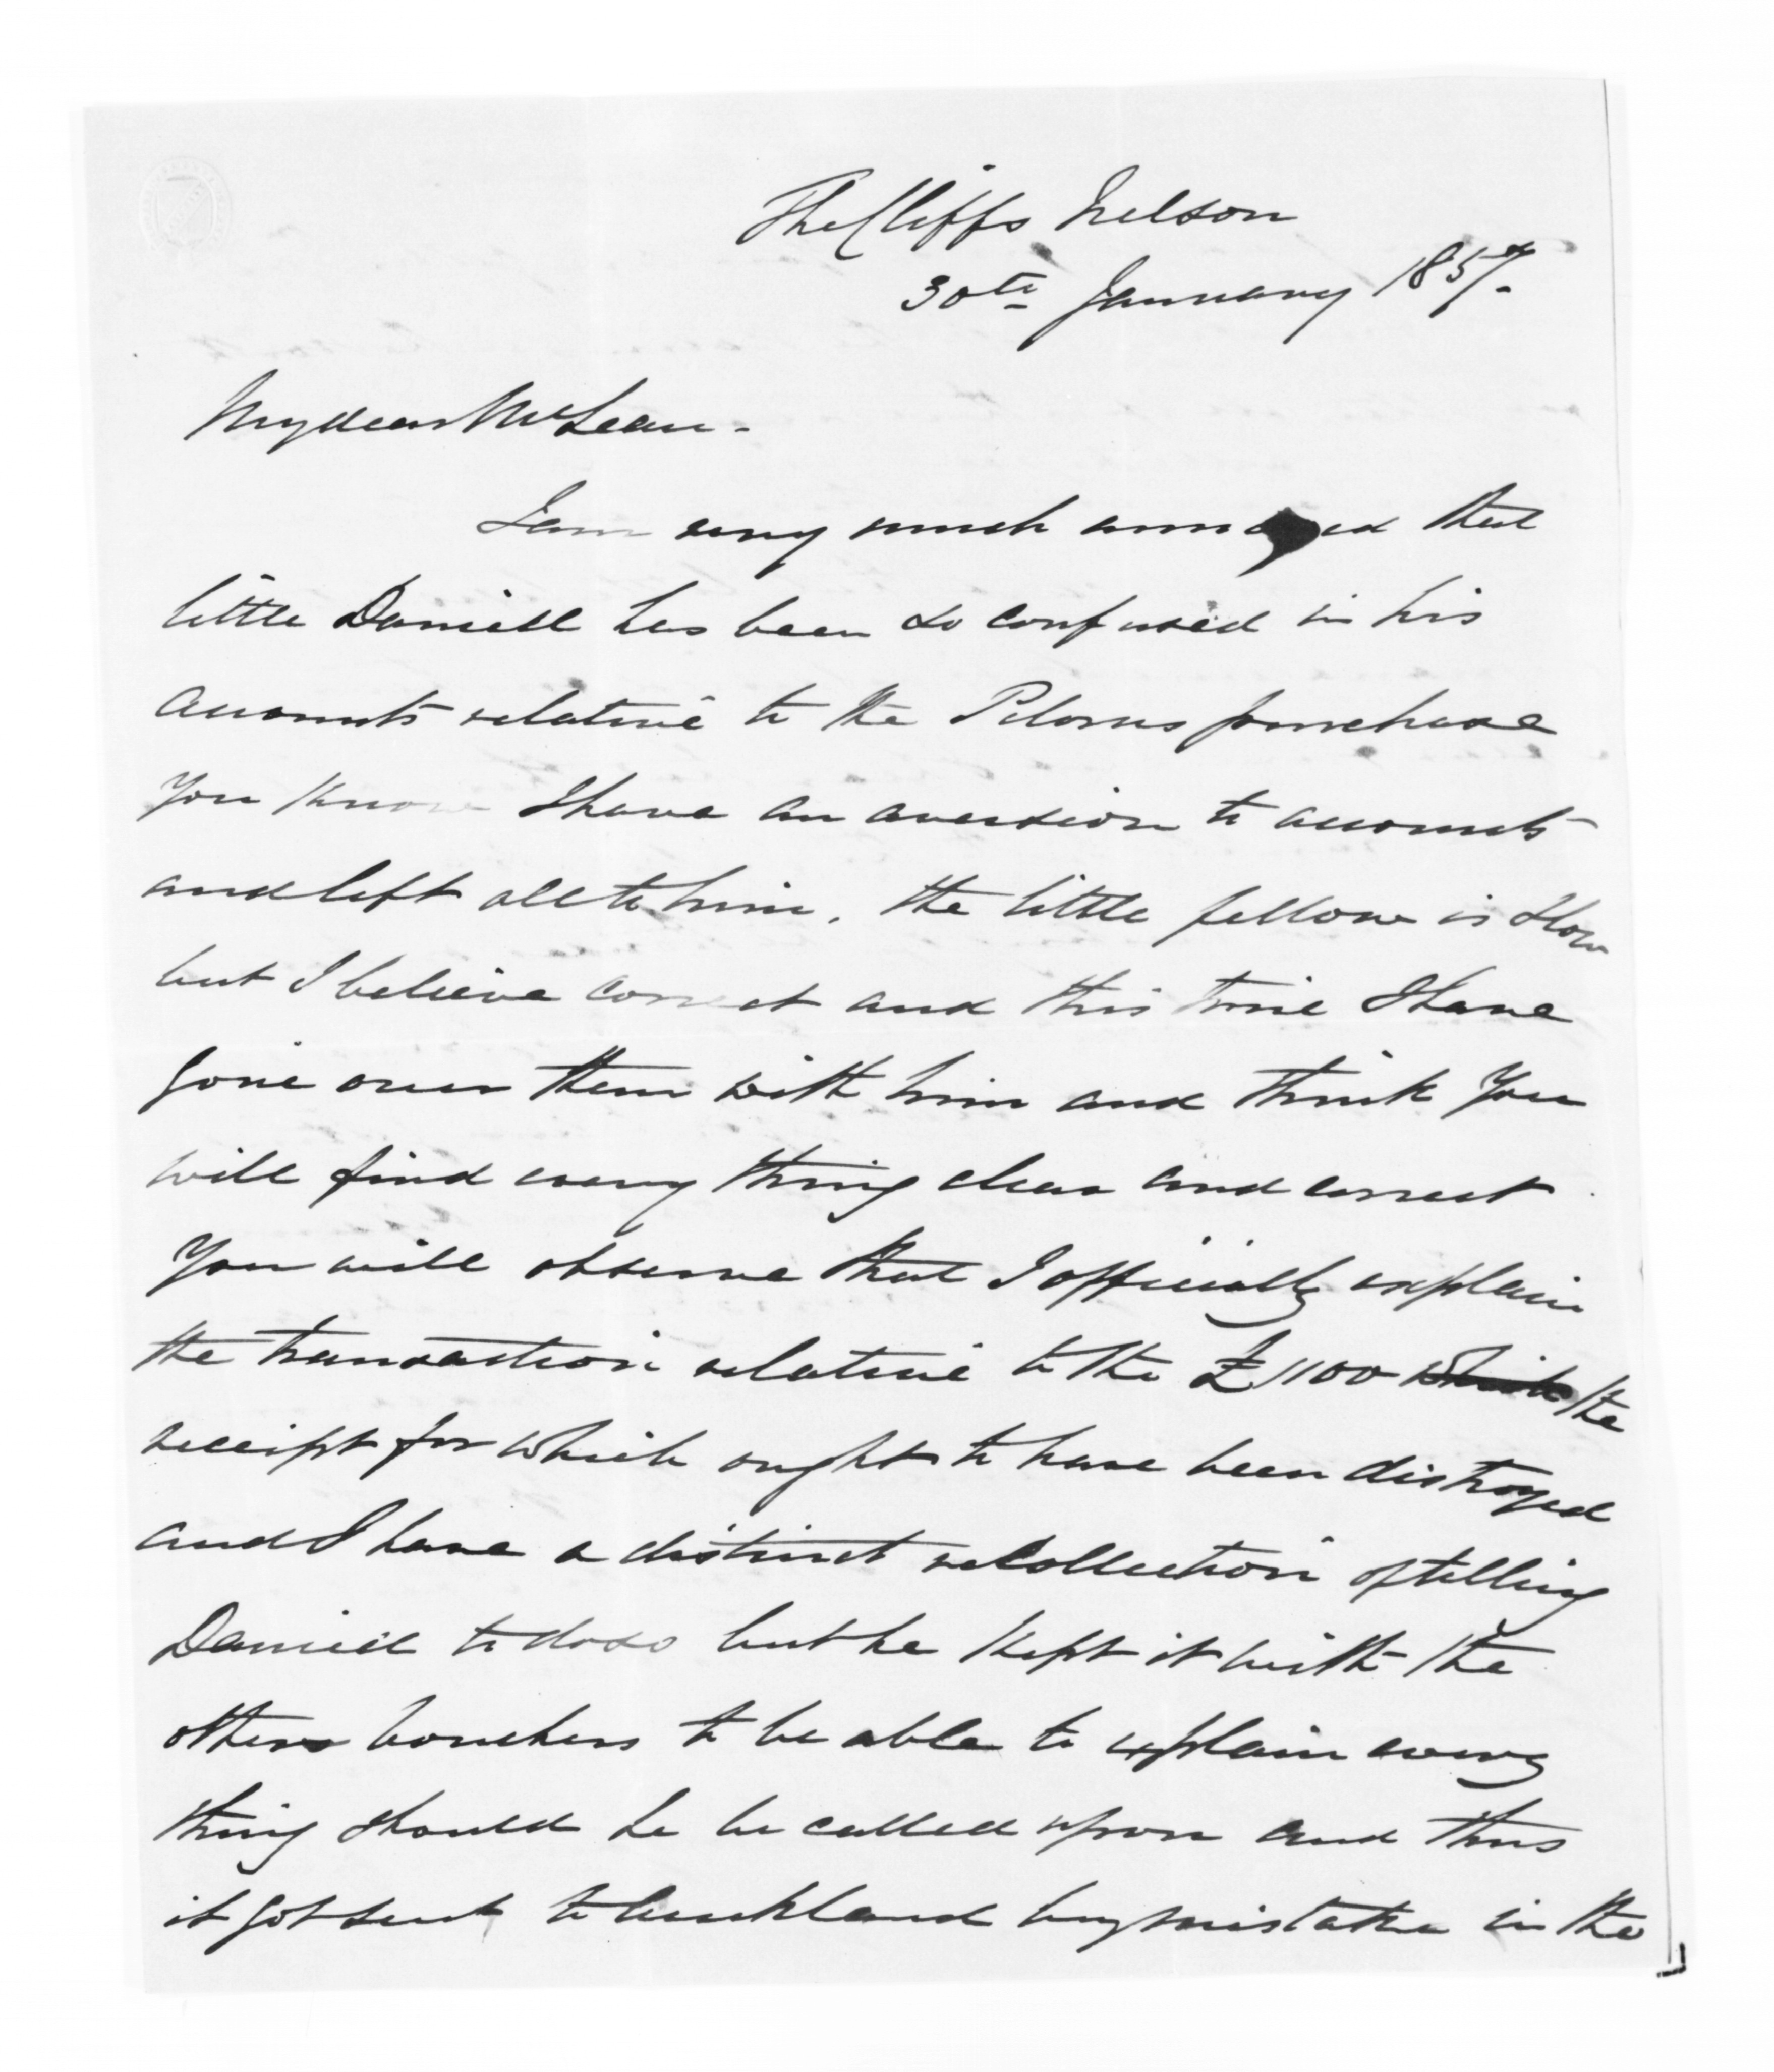 The Cliffs Nelson
30th January 1857.
My dear McLean.
I am very much annoyed that
little Daniell has been so confused in his
accounts relative to the Pelorus purchase
You know I have an aversion to accounts
and left all to him. the little fellow is slow
but I believe correct and this time I have
gone over them with him and think You
will find every thing clear and correct
You will observe that I officially explain
the transaction relative to the £100 which the
receipt for which ought to have been distroyed
and I have a distinct recollection of telling
Daniell to do so but he kept it with the
others vouchers to be able to explain every
thing should he be called upon and thus
it got sent to Auckland by mistake in the